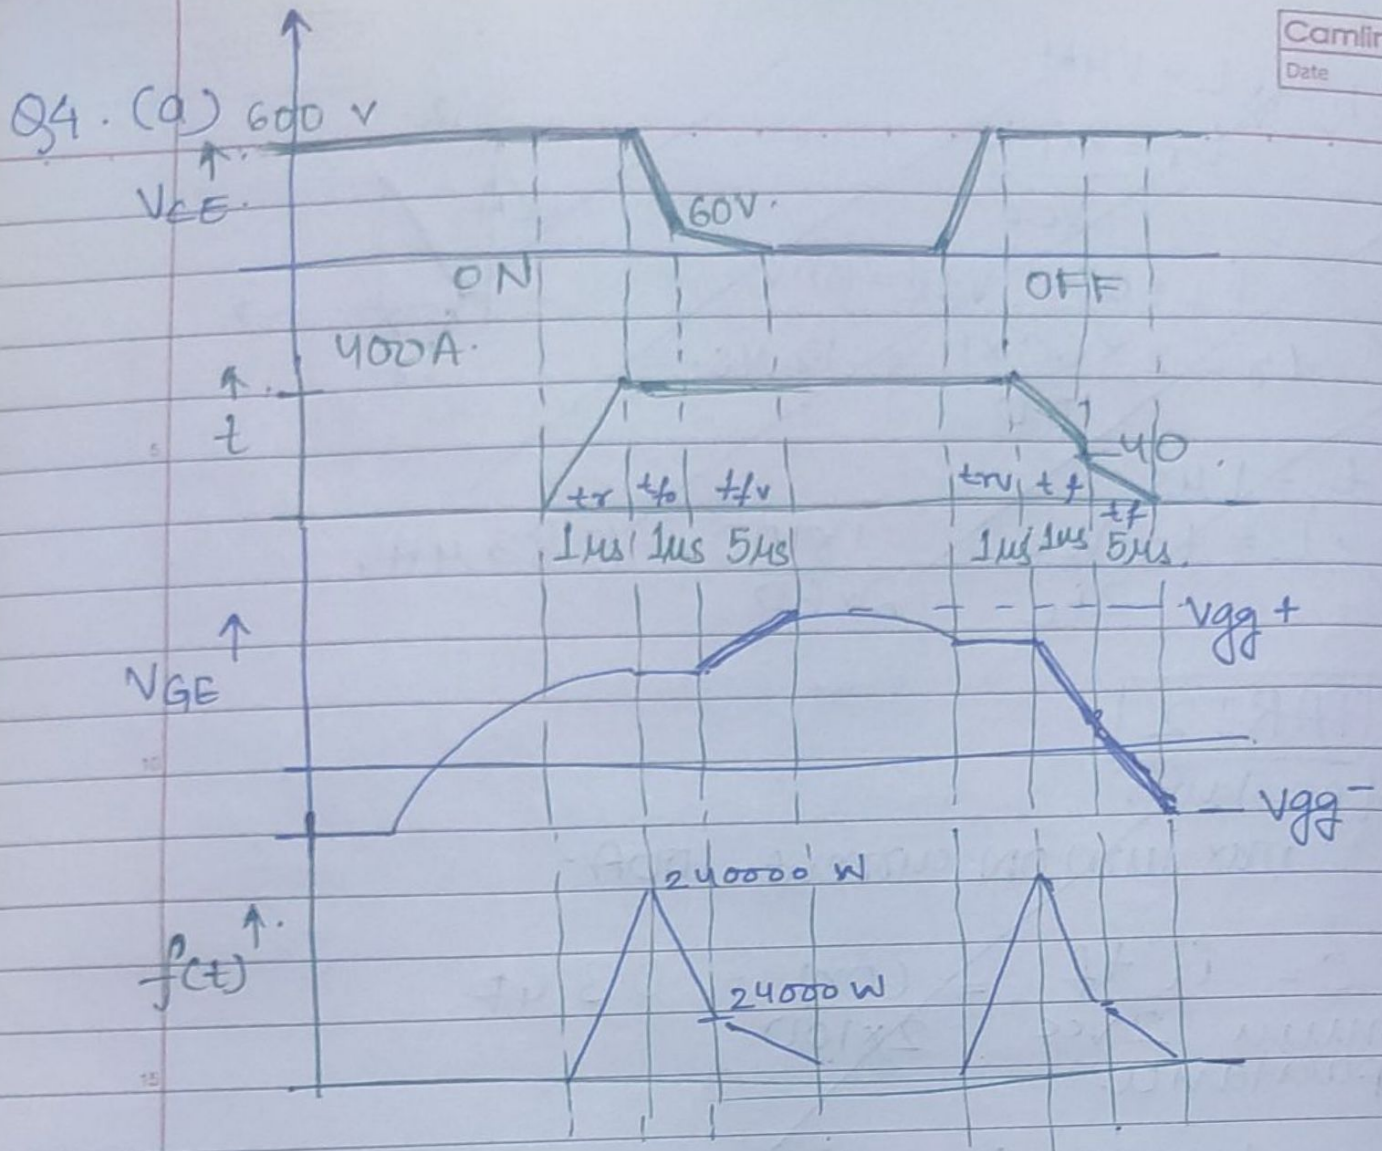 Camlin
Date
Q4. (a) 600 V
VCE
60V.
ON
OFF
400A.
t
40
tr
tfv
trv tf
tf
1μs 1μs 5μs
1μs 1μs 5μs
Vgg+
VGE
10
Vgg-
240000 W
24000 W
15